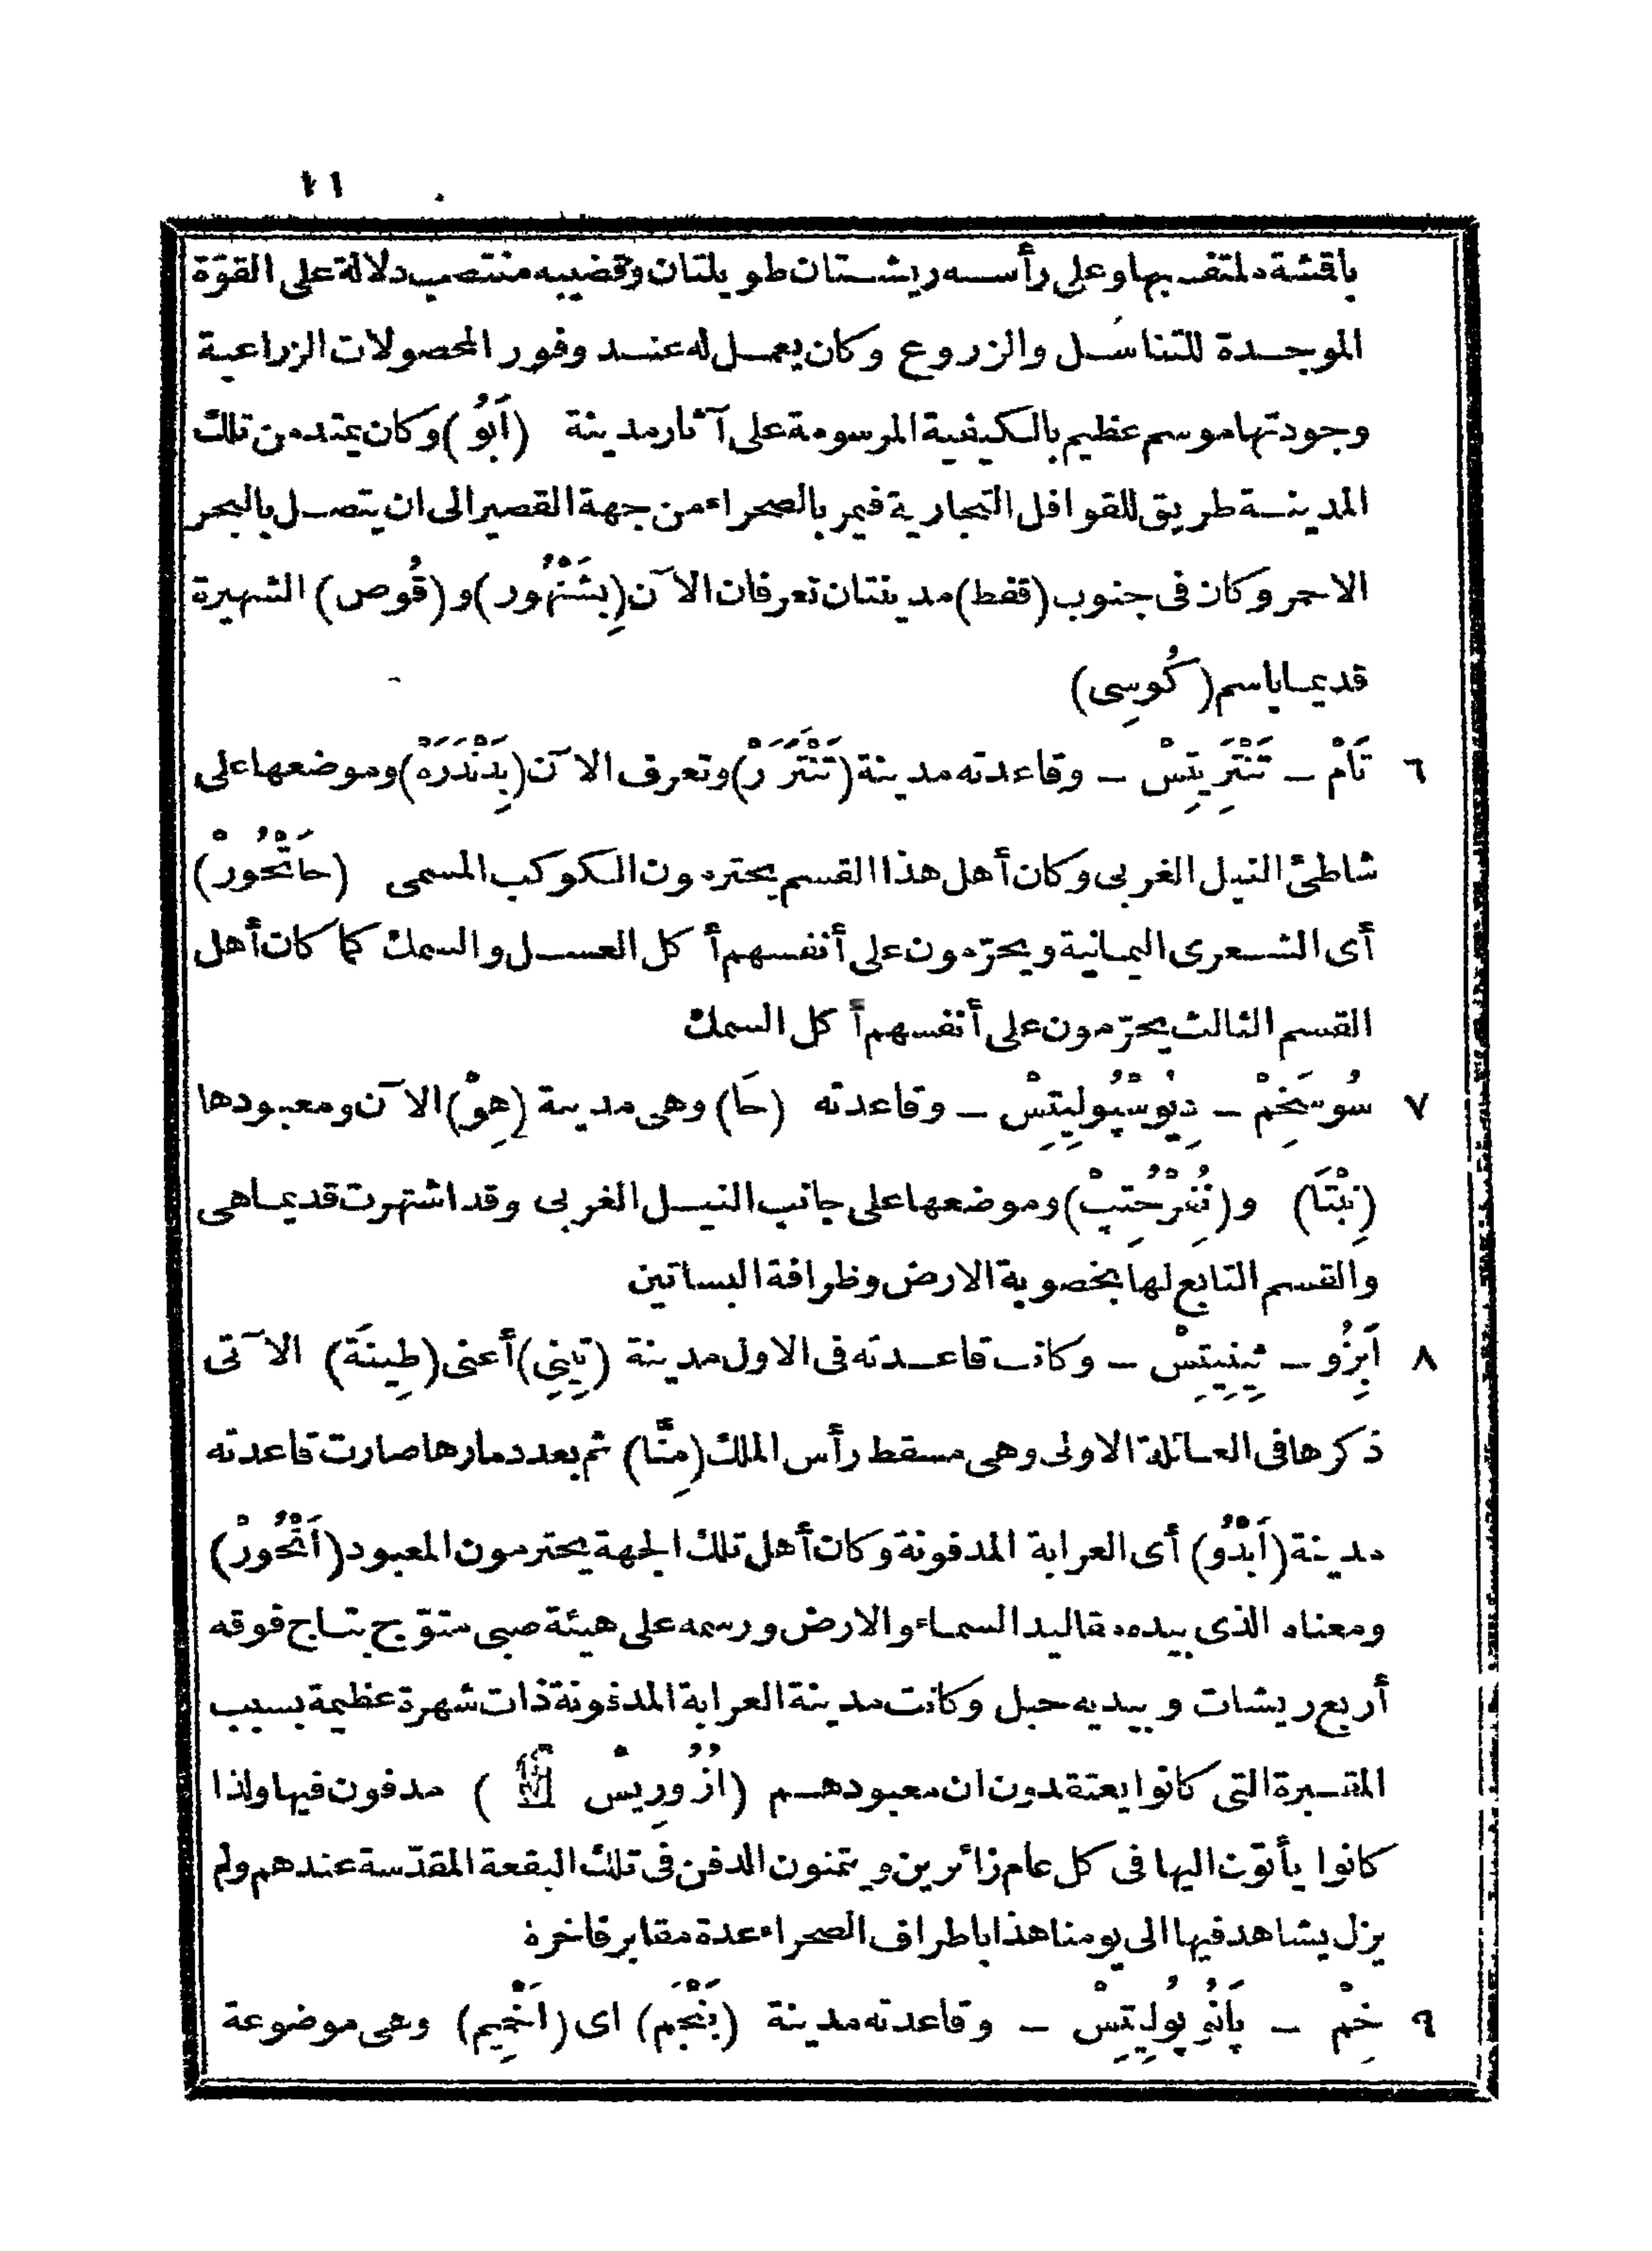 ٢١
باقشة ملتف بها وعلى رأسه ريشتان طويلتان وقضيبه منتصب دلالة على القوّة
الموجدة للتناسل والزروع وكان يعمل له عند وفور المحصولات الزراعية
وجودتها موسم عظيم بالكيفية المرسومة على آثار مدينة (اَبُو) وكان يمتد من تلك
المدينة طريق للقوافل التجارية فيمر بالصحراء من جهة القصير الى ان يتصل بالبحر
الاحمر وكان فى جنوب (قفط) مدينتان تعرفان الآن (بِشَنْهُور) و (قُوص) الشهيرة
قديما باسم (كُوسِى)
٦ تَامْ – تَنْتَرِيتِسْ – وقاعدته مدينة (تَنْتَرَرْ) وتعرف الآن (بِدَنْدَرَهْ) وموضعها على
شاطئ النيل الغربى وكان أهل هذا القسم يحترمون الكوكب المسمى (حَاتْحُورْ)
أى الشعرى اليمانية ويحرّمون على أنفسهم أكل العسل والسمك كما كان أهل
القسم الثالث يحرّمون على أنفسهم أكل السمك
٧ سُوسَخِمْ – دِيُوسْپُولِيتِسْ – وقاعدته (حَا) وهى مدينة (هِوْ) الآن ومعبودها
(نِبْتَا) و (نُفِرْحُتِپْ) وموضعها على جانب النيل الغربى وقد اشتهرت قديما هى
والقسم التابع لها بخصوبة الارض وظرافة البساتين
٨ اَبِزُو – ثِينِيتِسْ – وكانت قاعدته فى الاول مدينة (تِينِى) أعنى (طِينَة) الآتى
ذكرها فى العائلة الاولى وهى مسقط رأس الملك (مِنَّا) ثم بعد دمارها صارت قاعدته
مدينة (اَبْدُو) أى العرابة المدفونة وكان أهل تلك الجهة يحترمون المعبود (اَنْحُورْ)
ومعناه الذى بيده مقاليد السماء والارض ورسمه على هيئة صبى متوّج بتاج فوقه
أربع ريشات وبيديه حبل وكانت مدينة العرابة المدفونة ذات شهرة عظيمة بسبب
المقبرة التى كانوا يعتقدون ان معبودهم (ازُورِيسْ ) مدفون فيها ولذا
كانوا يأتون اليها فى كل عام زائرين ويتمنون الدفن فى تلك البقعة المقدّسة عندهم ولم
يزل يشاهد فيها الى يومنا هذا باطراف الصحراء عدة مقابر فاخرة
٩ خِمْ – پَانُوپُولِيتِسْ – وقاعدته مدينة (بَنْجَم) اى (اَخْمِيم) وهى موضوعة